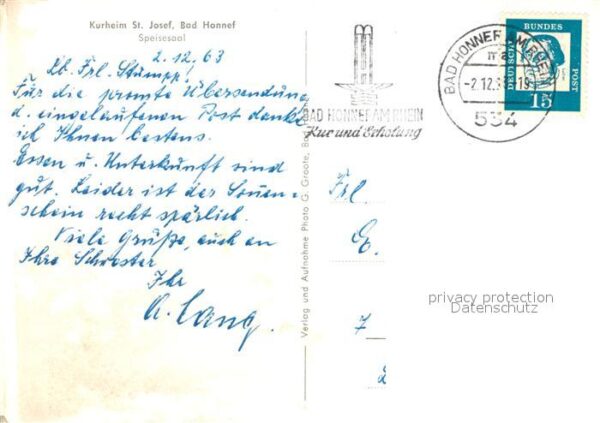 Kurheim St. Josef, Bad Honnef
Speisesaal
2.12.63
Lb. Frl. Stumpp!
Für die promte Übersendung
d. eingelaufenen Post danke
ich Ihnen bestens.
Essen u. Unterkunft sind
gut. Leider ist der Sonnen-
schein recht spärlich.
Viele Grüße, auch an
Ihre Schwester
Ihr
A. Lang.
Verlag und Aufnahme Photo G. Groote, Bad
BAD HONNEF AM RHEIN
Kur und Erholung
BAD HONNEF AM RHEIN
-2.12.
19
534
DEUTSCHE
BUNDES
POST
15
Frl.
E.
7
privacy protection
Datenschutz